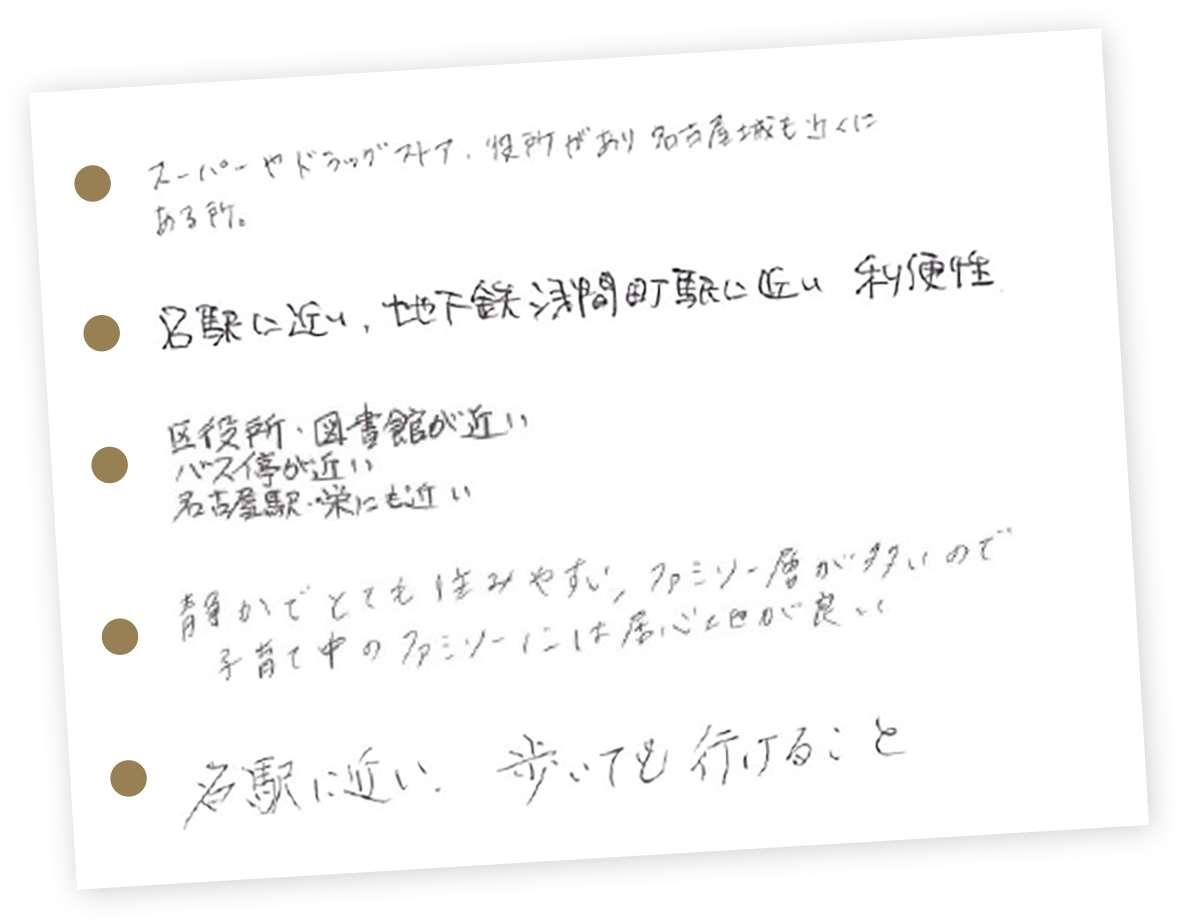 スーパーやドラッグストア、役所があり名古屋城も近くに
ある所。
名駅に近い、地下鉄浅間町駅に近い 利便性
区役所・図書館が近い
バス停が近い
名古屋駅・栄にも近い
静かでとても住みやすい、ファミリー層が多いので
子育て中のファミリーには居心地が良い
名駅に近い、歩いても行けること